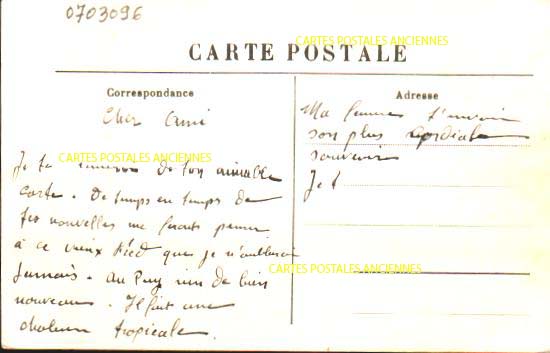 0703096
CARTES POSTALES ANCIENNES
CARTE POSTALE
Correspondance
Cher Ami
CARTES POSTALES ANCIENNES
Je te remercie de ton aimable
carte. De temps en temps de
tes nouvelles me feront penser
à ce vieux que je n'oublierai
Jamais. Au Puy rien de bien
nouveau. Il fait une
chaleur tropicale.
Adresse
Ma femme t'envoie
son plus cordiale
souvenir
CARTES POSTALES ANCIENNES